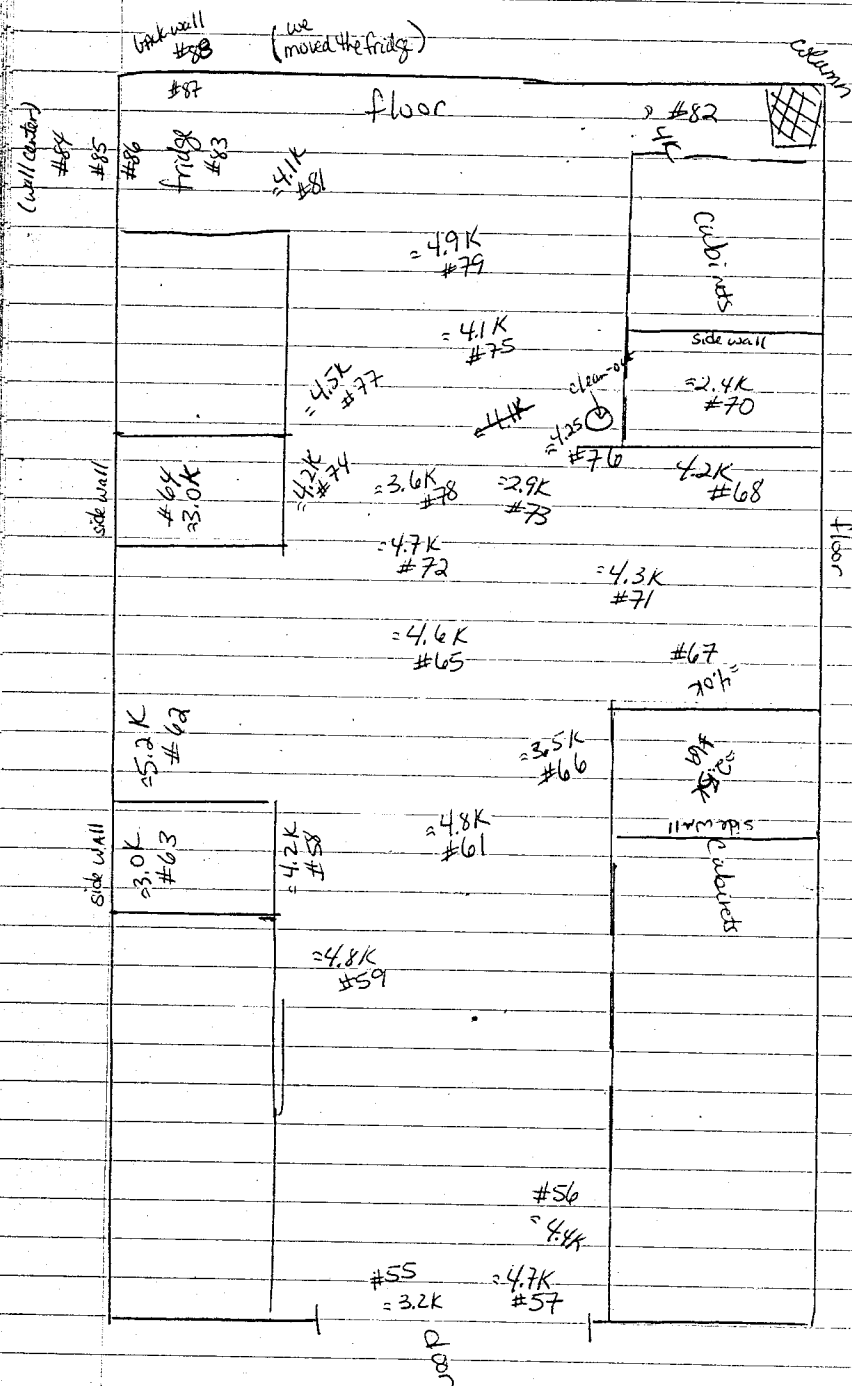 back wall
#88
(we
moved the fridge)
column
#87
floor
#82
4K
(wall center)
#84
#85
#86
fridge
#83
=4.1K
#81
=4.9K
#79
Cabinets
=4.1K
#75
side wall
=4.5K
#77
clean-out
=2.4K
#70
=4.25
#76
side wall
#64
=3.0K
=4.2K
#74
=3.6K
#78
=2.9K
#73
4.2K
#68
floor
=4.7K
#72
=4.3K
#71
=4.6K
#65
#67
=4.0K
=5.2K
#62
=3.5K
#66
#69
side wall
side WALL
=3.0K
#63
=4.2K
#58
=4.8K
#61
Cabinets
=4.8K
#59
#56
=4.4K
#55
=3.2K
=4.7K
#57
door